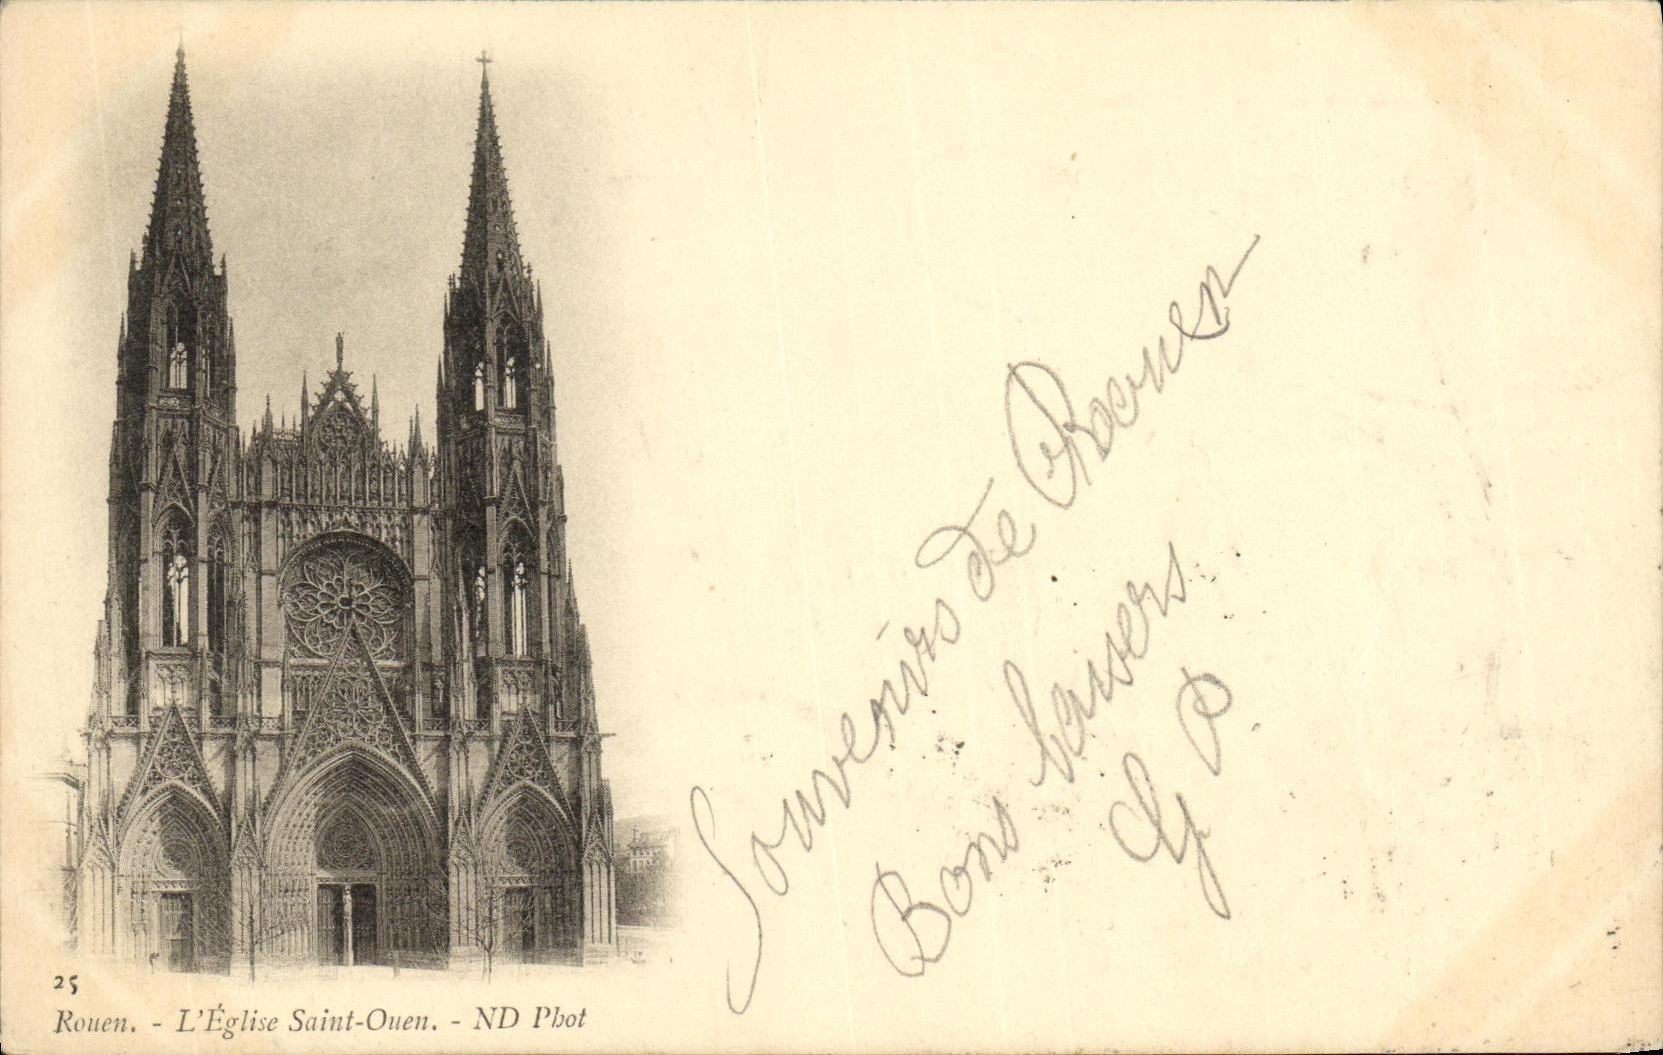 Souvenirs de Rouen
Bons baisers
G P
25
Rouen. - L'Église Saint-Ouen. - ND Phot